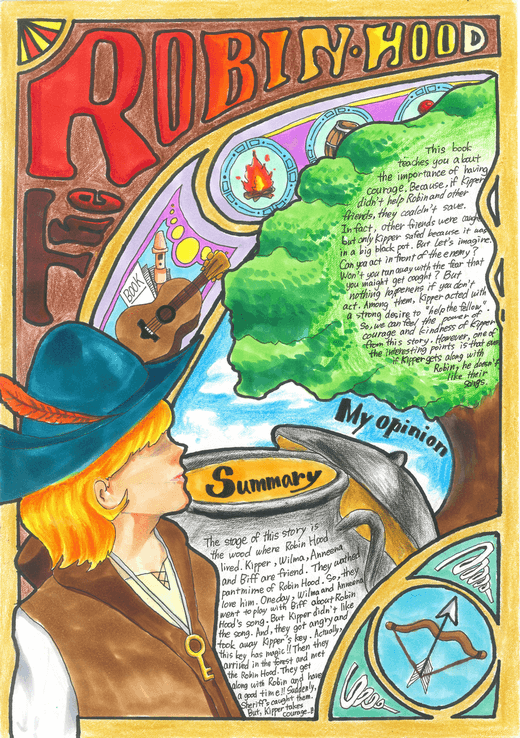 ROBIN·HOOD
The
BOOK
This book
teaches you about
the importance of having
courage. Because, if Kipper
didn't help Robin and other
friends, they coaldn't save.
In fact, other friends were caught
but only Kipper safed because it was
in a big black pot. But Let's imagine.
Can ya act in front of the enemy?
Won't you run away with the fear that
you maight get caught? But
nothing happenens if you don't
act. Among them, Kipper acted with
a strong desire to "help the fellow".
So, we can feel the power of
courage and kindness of Kipper
from this story. However, one of
the interesting points is that even
if Kipper gets along with
Robin, he doesn't
like their
songs.
My opinion
Summary
The stage of this story is
the wood where Robin Hood
lived. Kipper, Wilma, Anneena
and Biff are friend. They wathed
pantmime of Robin Hood. So, they
love him. One day, Wilma and Anneena
went to play with Biff about Robin
Hood's song. But Kipper didn't like
the song. And, they got angry and
took away Kipper's key. Actually,
this key has magic!! Then they
arrived in the forest and met
the Robin Hood. They get
along with Robin and have
a good time!! Suddenly,
Sheriff's caught them.
But, Kipper takes
courage.